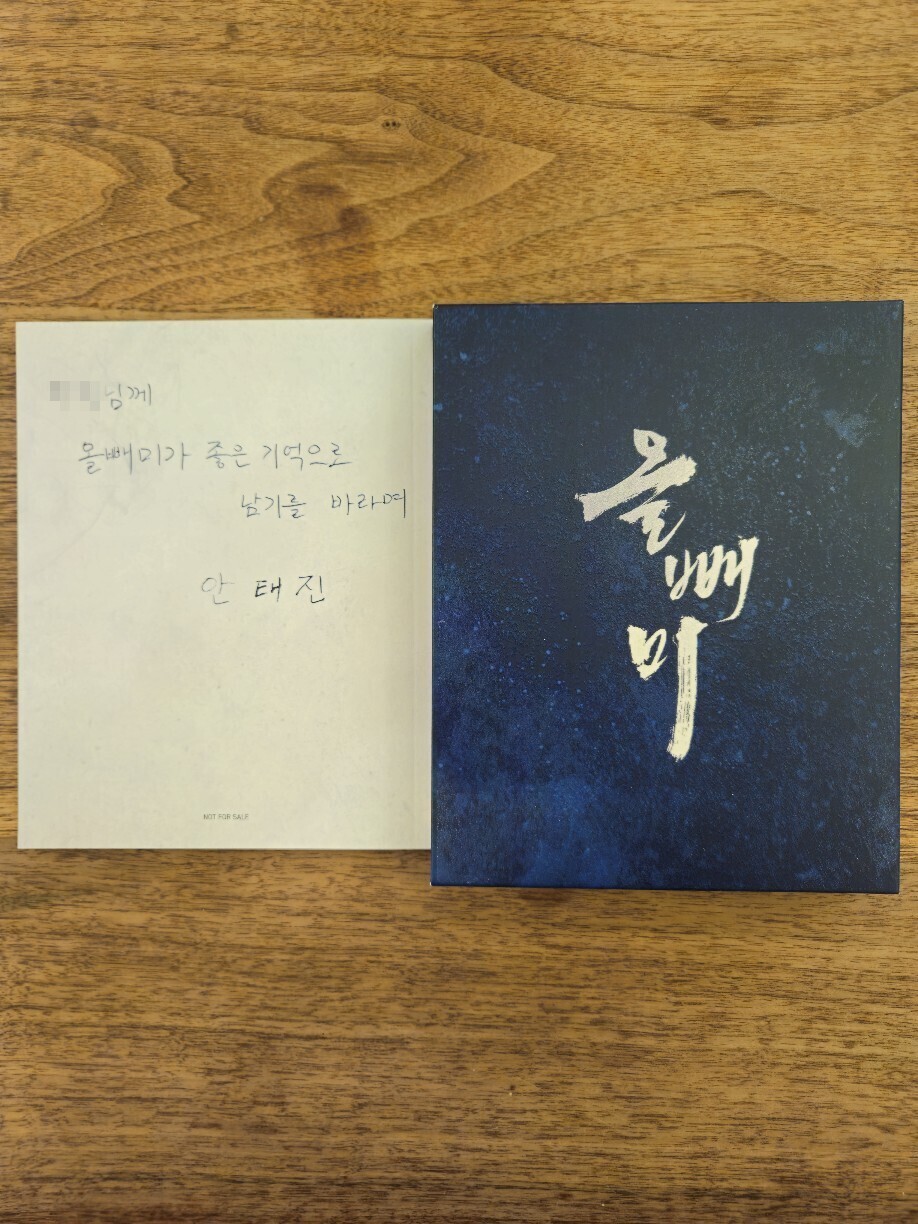 님께
올빼미가 좋은 기억으로
남기를 바라며
안태진
NOT FOR SALE
올
빼
미